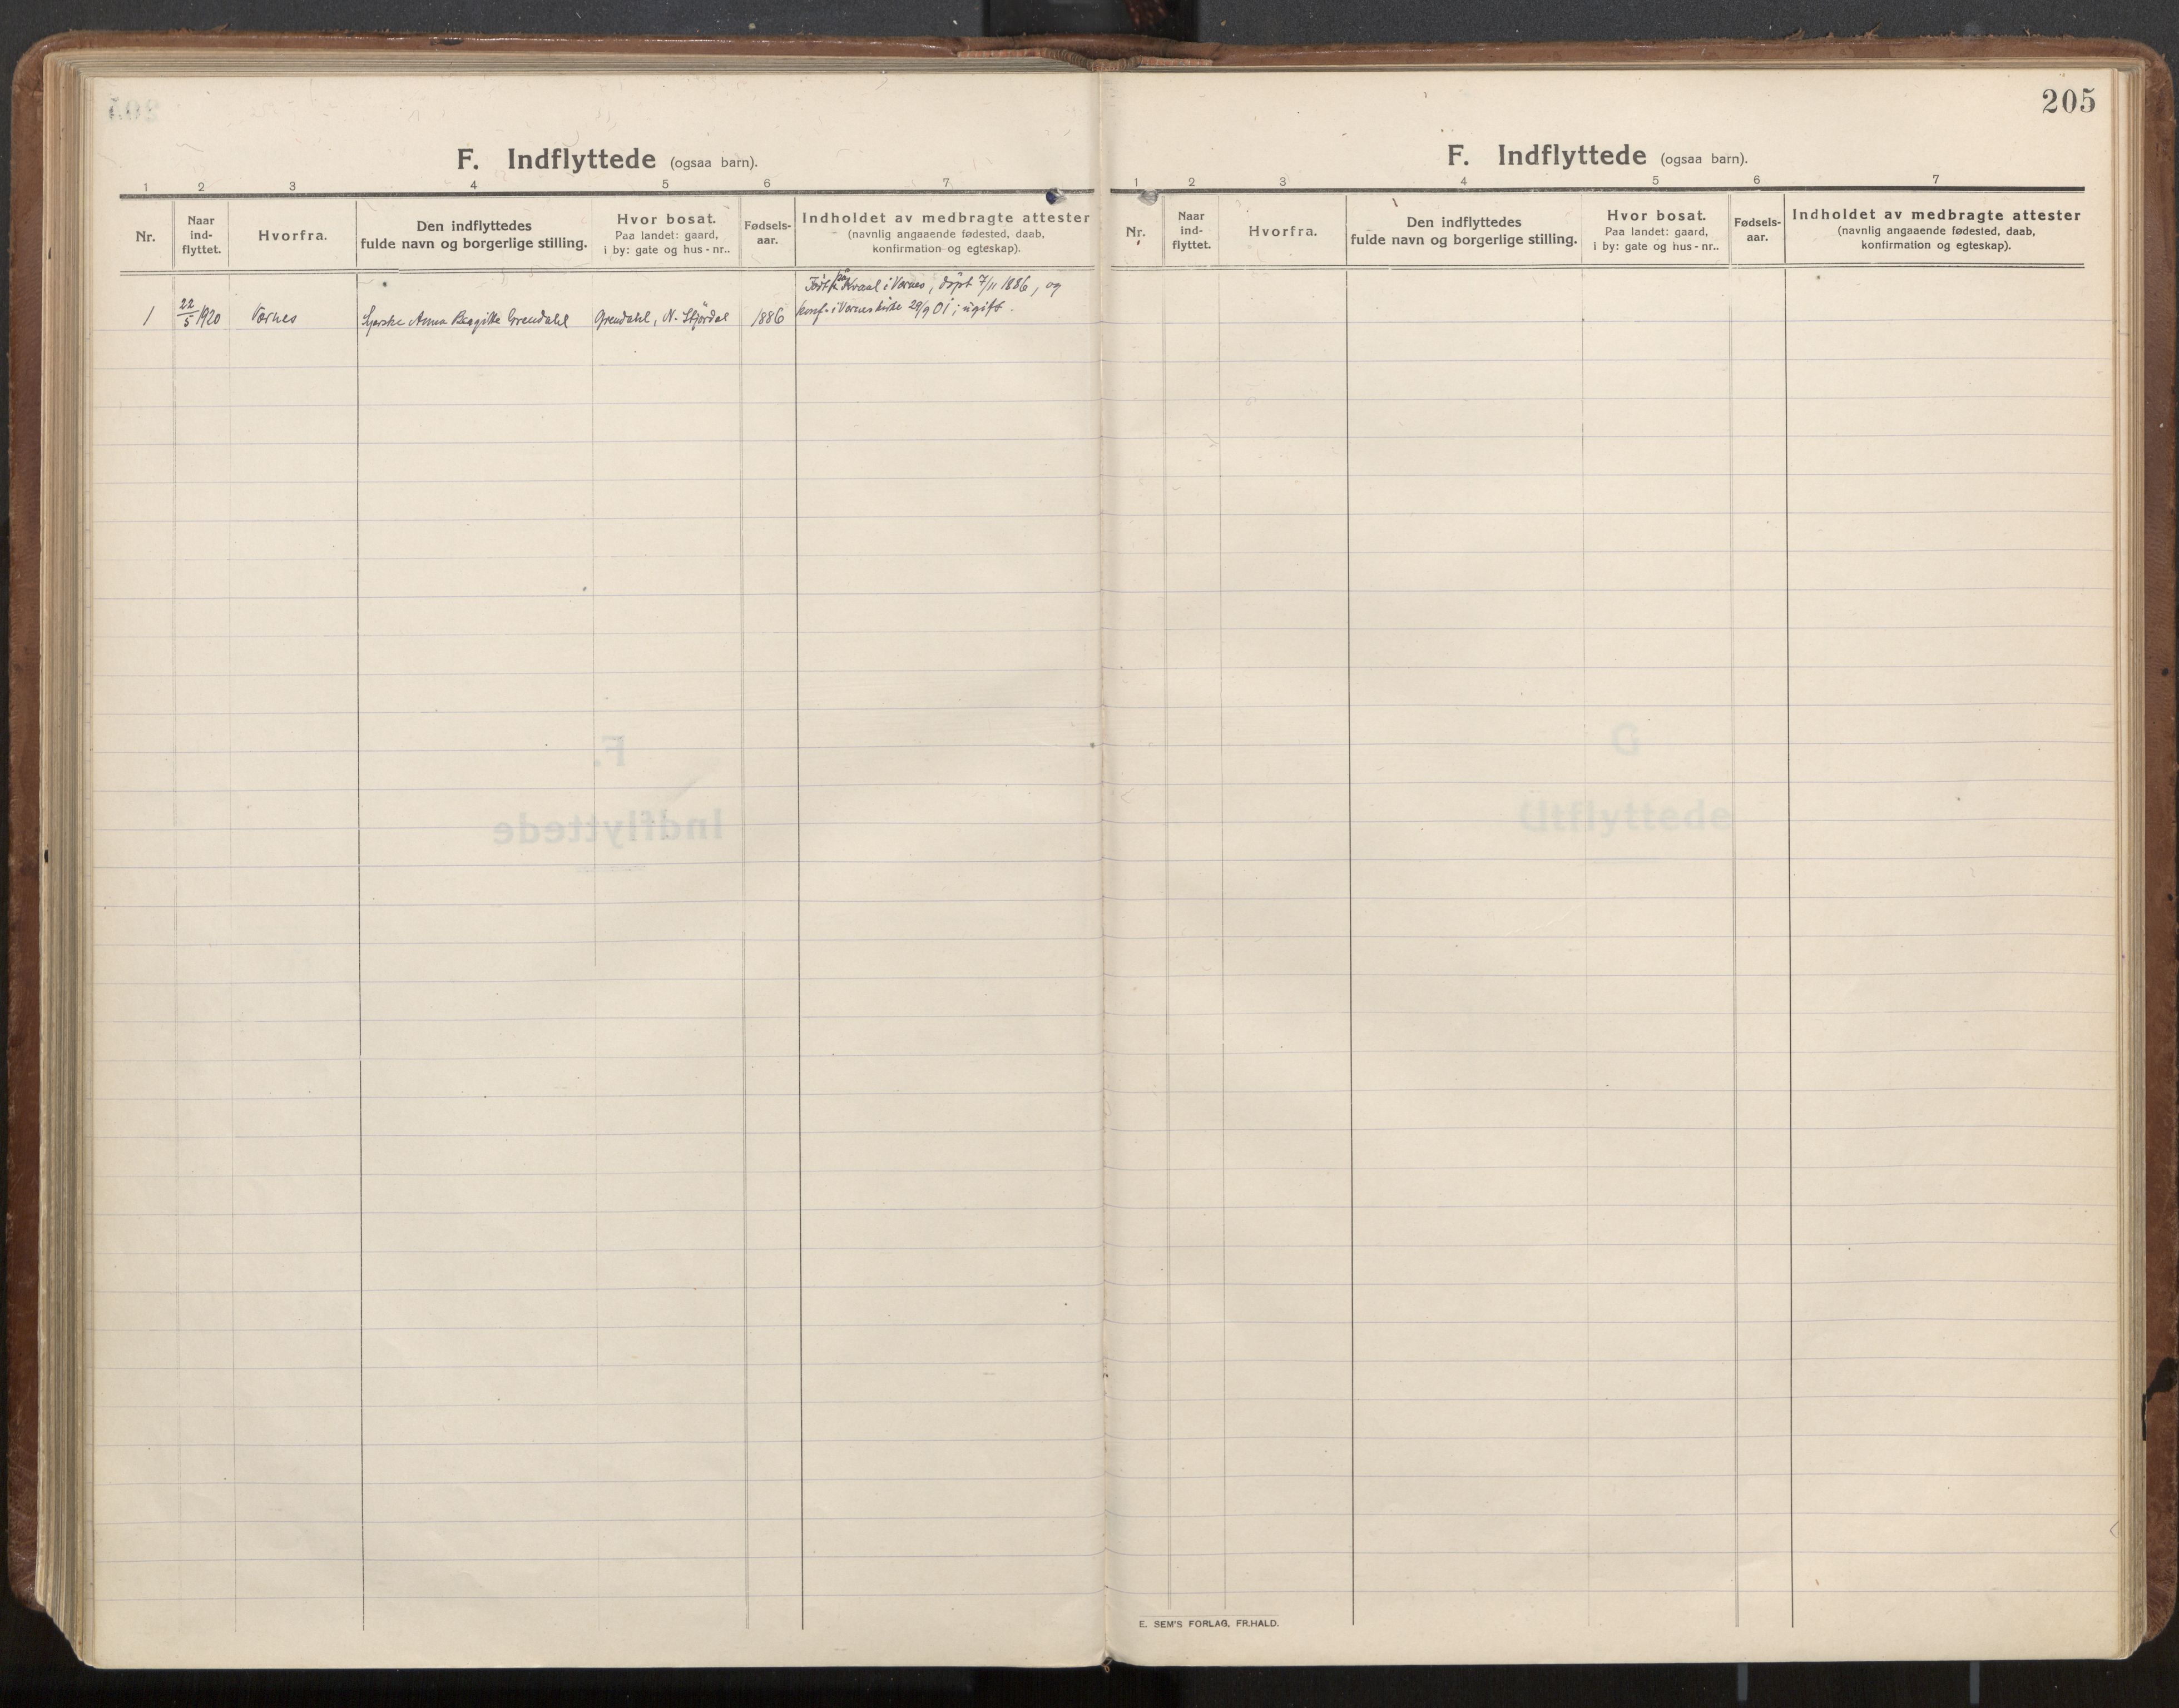 F. Indflyttede (ogsaa barn).
1 2 3 4 5 6 7
Nr.
Naar
ind-
flyttet.
Hvorfra.
Den indflyttedes
fulde navn og borgerlige stilling.
Hvor bosat.
Paa landet: gaard,
i by: gate og hus-nr..
Fødsels-
aar.
Indholdet av medbragte attester
(navnlig angaaende fødested, daab,
konfirmation og egteskap).
på
Født Kvaal i Værnes, døpt 7/11 1886, og
1 22/5 1920 Værnes Anna Bergitte Grendahl Grendahl, N. Stjørdal 1886 konf. i Værnes kirke 29/9 01; ugift.
205
F. Indflyttede (ogsaa barn).
1 2 3 4 5 6 7
Nr.
Naar
ind-
flyttet.
Hvorfra.
Den indflyttedes
fulde navn og borgerlige stilling.
Hvor bosat.
Paa landet: gaard,
i by: gate og hus-nr..
Fødsels-
aar.
Indholdet av medbragte attester
(navnlig angaaende fødested, daab,
konfirmation og egteskap).
E. SEM'S FORLAG, FR.HALD.